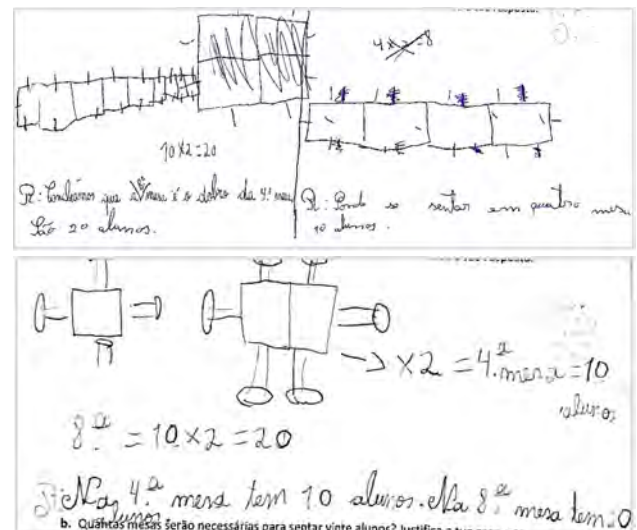 4 x 2 = 8
10 x 2 = 20
R: que a 8ª mesa é o dobro da 4ª mesa
São 20 alunos.
R: Pondo se sentar em quatro mesas
10 alunos.
→ x 2 = 4.ª mesa = 10
alunos
8.ª = 10 x 2 = 20
R: Na 4.ª mesa tem 10 alunos. Na 8.ª mesa tem 20
alunos
b. Quantas mesas serão necessárias para sentar vinte alunos? Justifica a tua